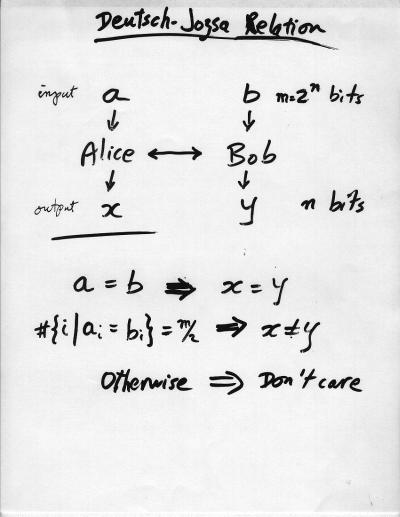 Deutsch-Jozsa Relation
input a b m=2ⁿ bits
↓ ↓
Alice ↔ Bob
↓ ↓
output x y n bits
a = b ⇒ x = y
#{i | aᵢ = bᵢ} = m/2 ⇒ x ≠ y
Otherwise ⇒ Don't care